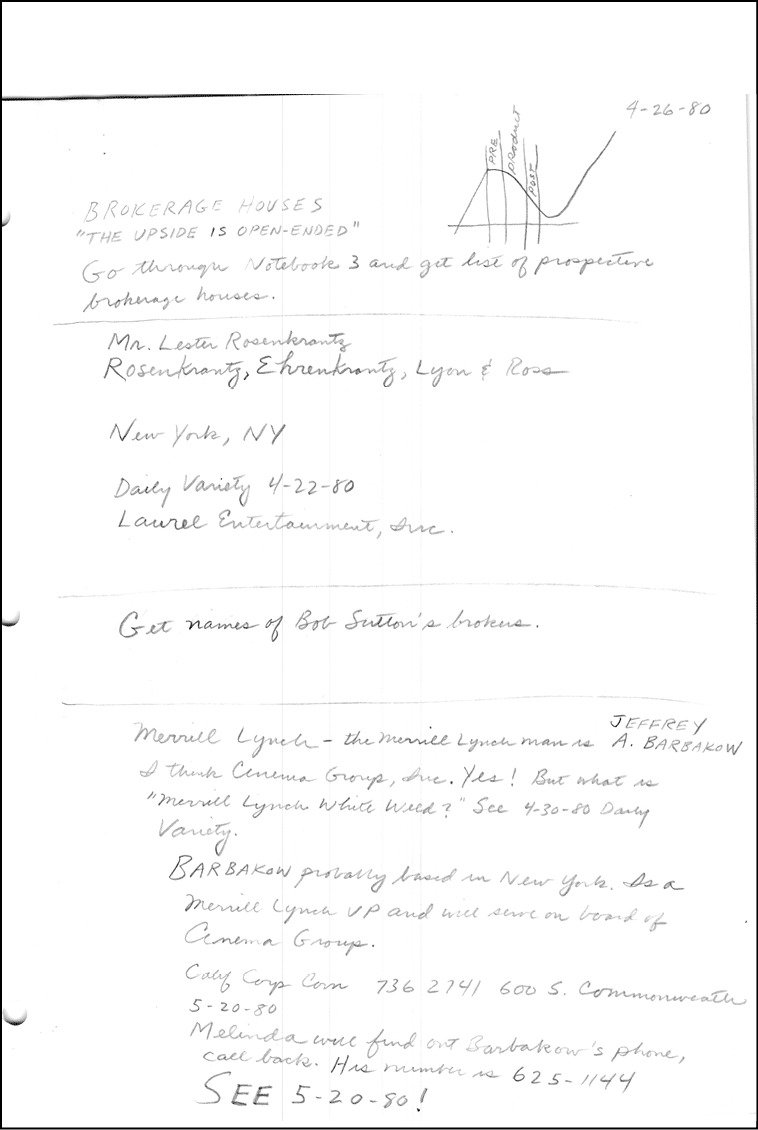 4-26-80
PRE
PRODUCT
POST
BROKERAGE HOUSES
"THE UPSIDE IS OPEN-ENDED"
Go through Notebook 3 and get list of prospective
brokerage houses.
Mr. Lester Rosenkrantz
Rosenkrantz, Ehrenkrantz, Lyon & Ross
New York, NY
Daily Variety 4-22-80
Laurel Entertainment, Inc.
Get names of Bob Sutton's brokers.
JEFFREY
Merrill Lynch - the Merrill Lynch man is A. BARBAKOW
I think Cinema Group, Inc. Yes! But what is
"Merrill Lynch White Weld?" See 4-30-80 Daily
Variety.
BARBAKOW probably based in New York. Is a
Merrill Lynch VP and will serve on board of
Cinema Group.
Calif Corp Com 736 2741 600 S. Commonwealth
5-20-80
Melinda will find out Barbakow's phone,
call back. His number is 625-1144
SEE 5-20-80!